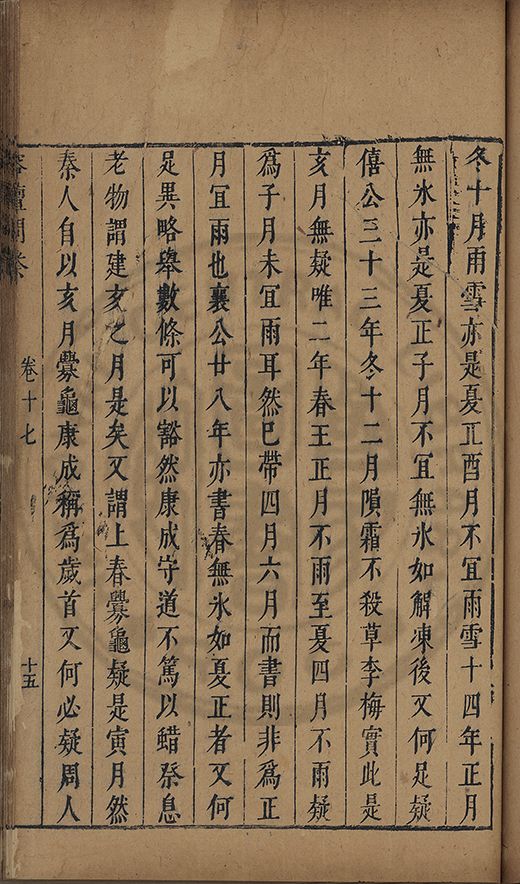 冬十月雨雪亦是夏正酉月不宜雨雪十四年正月
無氷亦是夏正子月不宜無氷如解凍後又何足疑
僖公三十三年冬十二月隕霜不殺草李梅實此是
亥月無疑唯二年春王正月不雨至夏四月不雨疑
為子月未宜雨耳然已帶四月六月而書則非為正
月宜雨也襄公廿八年亦書春無氷如夏正者又何
足異略舉數條可以豁然康成守道不篤以蜡祭息
老物謂建亥之月是矣又謂上春釁龜疑是寅月然
秦人自以亥月釁龜康成稱為歲首又何必疑周人
卷十七
十五